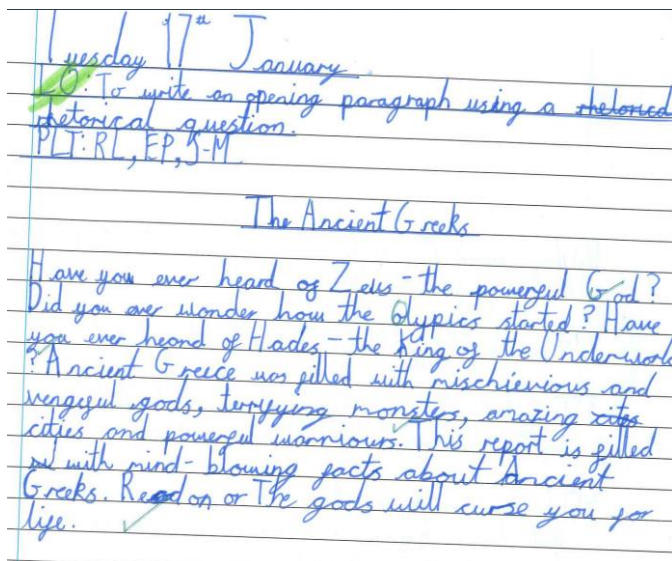 Tuesday 17th January
LO: To write an opening paragraph using a rhetorical
rhetorical question.
PLT: RL, EP, S-M
The Ancient Greeks
Have you ever heard of Zeus - the powerful God?
Did you ever wonder how the Olypics started? Have
you ever heard of Hades - the King of the Underworld
? Ancient Greece was filled with mischievious and
vengeful gods, terrifying monsters, amazing cites
cities and powerful warriours. This report is filled
with mind-blowing facts about Ancient
Greeks. Read on or The gods will curse you for
life.